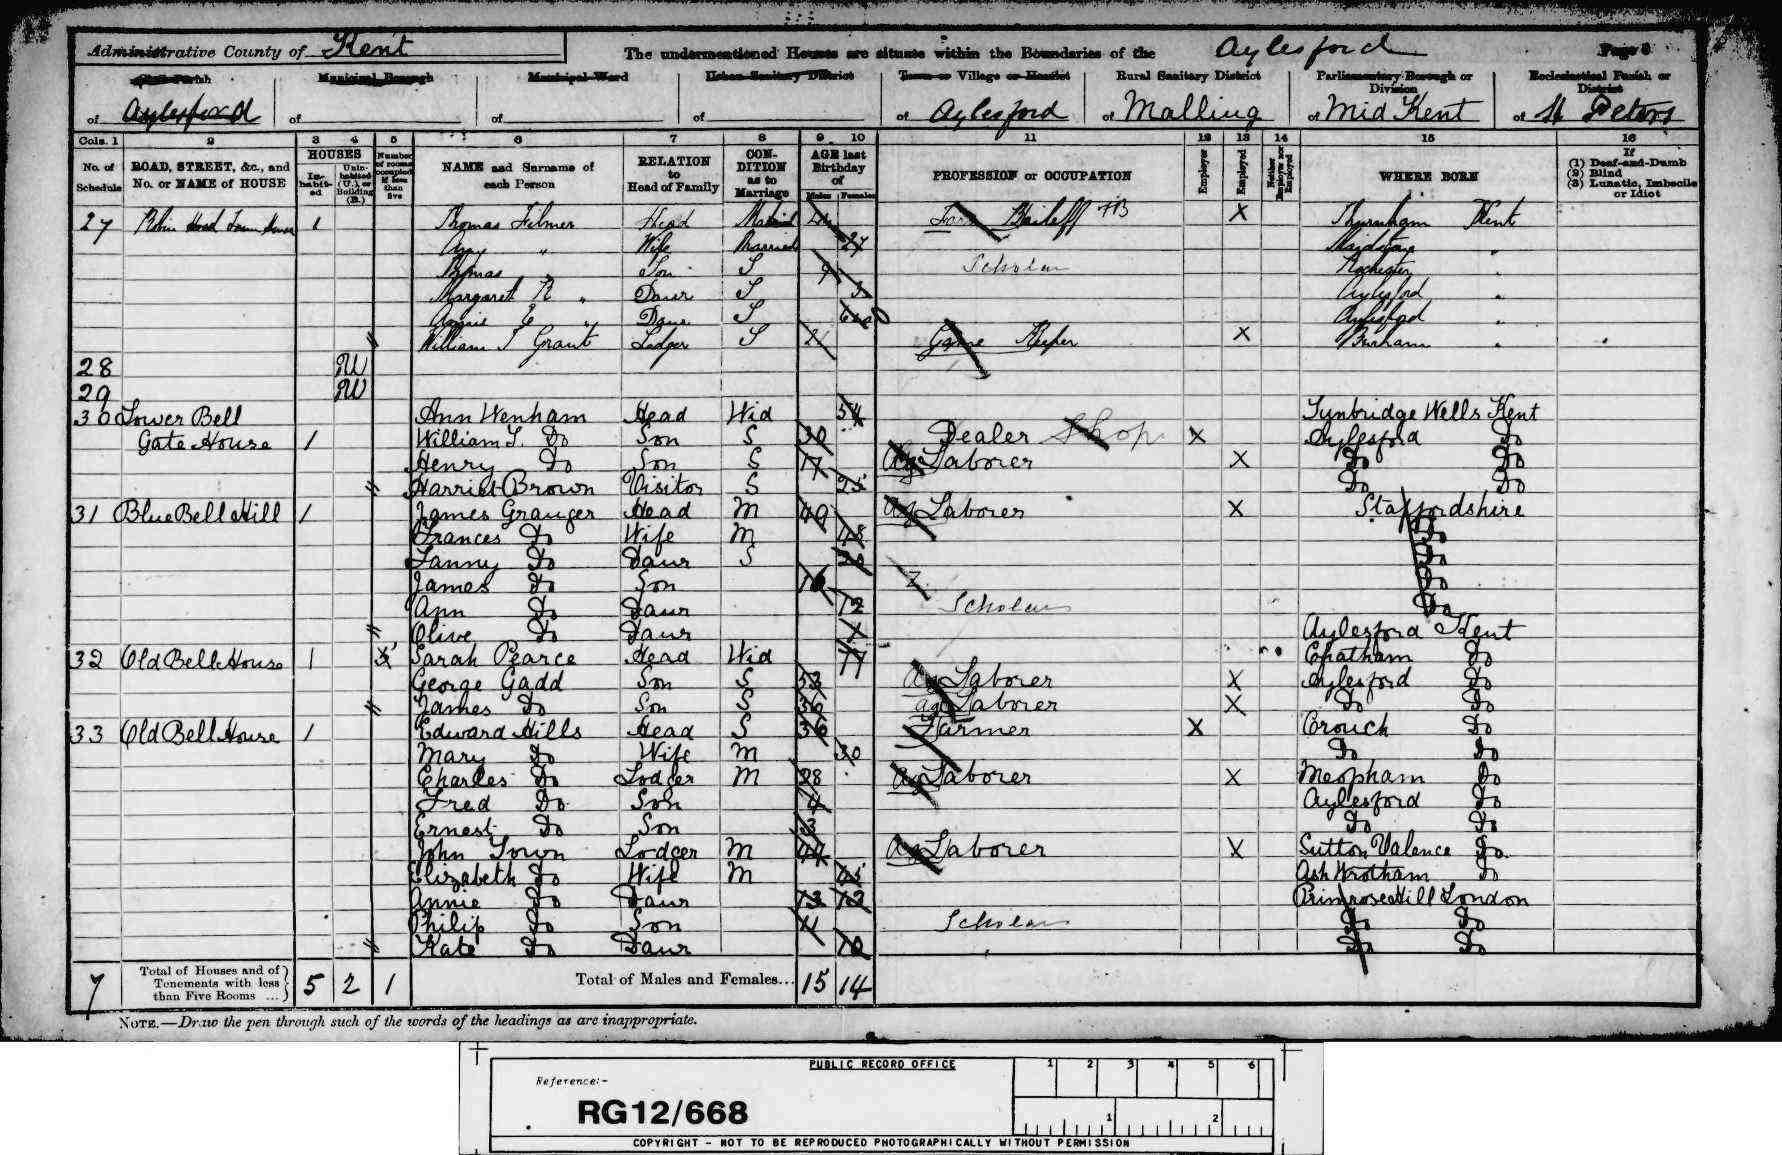 Administrative County of Kent The undermentioned Houses are situate within the Boundaries of the Aylesford Page
Civil Parish Municipal Borough Municipal Ward Urban Sanitary District Town or Village or Hamlet Rural Sanitary District Parliamentary Borough or Division Ecclesiastical Parish or District
of Aylesford of of of of Aylesford of Malling of Mid Kent of St Peters
Cols. 1 2 3 4 5 6 7 8 9 10 11 12 13 14 15 16
No. of Schedule ROAD, STREET, &c., and No. or NAME of HOUSE HOUSES Inhabited Uninhabited (U.), or Building (B.) Number of rooms occupied if less than five NAME and Surname of each Person RELATION to Head of Family CONDITION as to Marriage AGE last Birthday of Males Females PROFESSION or OCCUPATION Employer Employed Neither Employer nor Employed WHERE BORN If (1) Deaf-and-Dumb (2) Blind (3) Lunatic, Imbecile or Idiot
27 Robin Hood Farm House 1 Thomas Filmer Head Married Farm Bailiff FB X Thurnham Kent
Amy " Wife Married 27 Maidstone "
Thomas " Son S 9 Scholar Rochester "
Margaret R " Daur S 3 Aylesford "
Annie E " Daur S Aylesford "
William T Grant Lodger S 21 Game Keeper X Burham "
28 W
29 W
30 Lower Bell Ann Wenham Head Wid 54 Tunbridge Wells Kent
Gate House 1 William T. Do Son S 30 Dealer Shop X Aylesford Do
Henry Do Son S 17 Ag Laborer X Do Do
Harriet Brown Visitor S 25 Do Do
31 Blue Bell Hill 1 James Granger Head M 49 Ag Laborer X Staffordshire
Frances Do Wife M 48 Do
Fanny Do Daur S 20 Do
James Do Son 16 Do
Ann Do Daur 12 Scholar Do
Olive Do Daur Aylesford Kent
32 Old Bell House 1 Sarah Pearce Head Wid 77 Chatham Do
George Gadd Son S 53 Ag Laborer X Aylesford Do
James Do Son S 50 Ag Laborer X Do Do
33 Old Bell House 1 Edward Hills Head S 36 Farmer X Crouch Do
Mary Do Wife M 30 Do Do
Charles Do Lodger M 28 Ag Laborer X Meopham Do
Fred Do Son 4 Aylesford Do
Ernest Do Son 3 Do Do
John Town Lodger M 44 Ag Laborer X Sutton Valence Do
Elizabeth Do Wife M 45 Ash Wrotham Do
Annie Do Daur 13 13 Primrose Hill London
Philip Do Son 11 Scholar Do Do
Kate Do Daur 10 Do Do
7 Total of Houses and of Tenements with less than Five Rooms ... 5 2 1 Total of Males and Females... 15 14
NOTE.—Draw the pen through such of the words of the headings as are inappropriate.
PUBLIC RECORD OFFICE 1 2 3 4 5 6
Reference:-
RG12/668 1 2
COPYRIGHT - NOT TO BE REPRODUCED PHOTOGRAPHICALLY WITHOUT PERMISSION